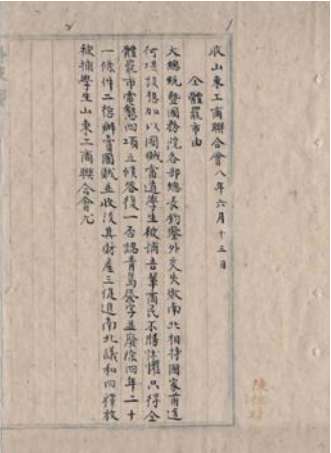 收山東工商聯合會八年六月十三日
全體罷市由
大總統暨國務院各部總長鈞鑒外交失敗南北相持國家前途
何堪設想加以國賊當道學生被捕吾輩商民不勝悚懼只得全
體罷市電懇四項立候答復一否認青島簽字並廢除四年二十
一條件二懲辦賣國賊並收沒其財產三促進南北議和四釋放
被捕學生山東工商聯合會九